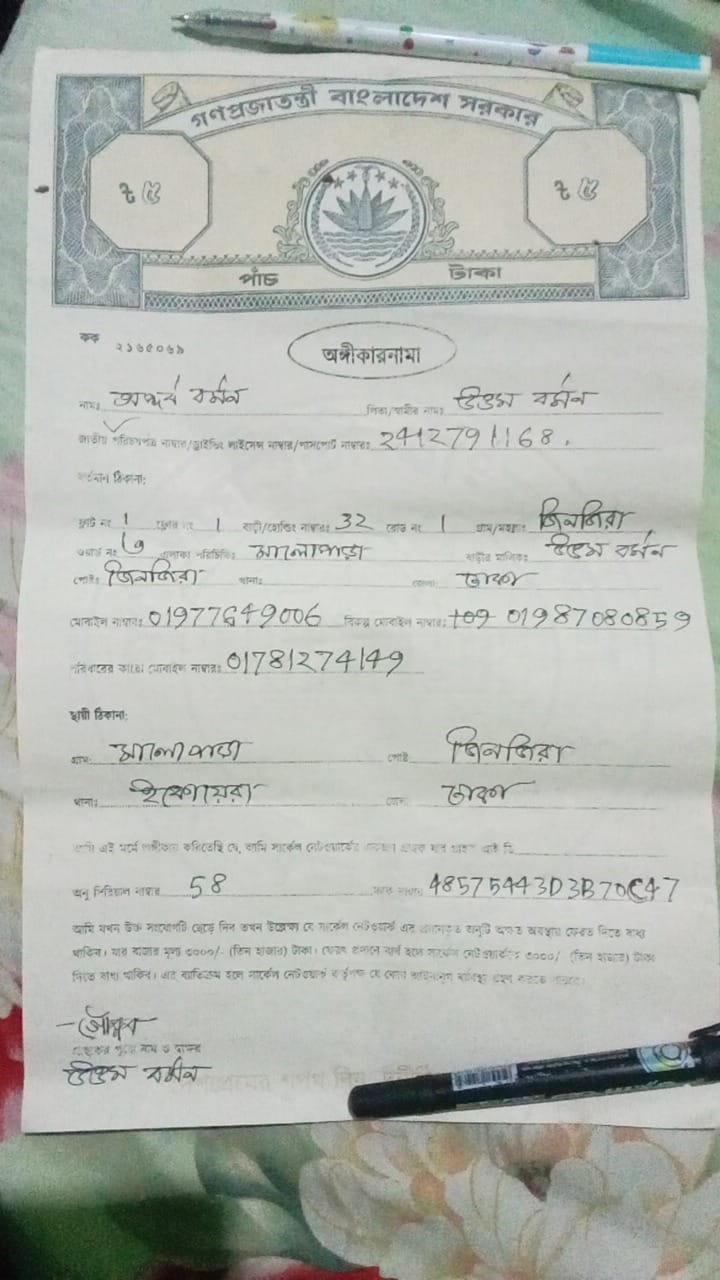 গণপ্রজাতন্ত্রী বাংলাদেশ সরকার
৳ ৫ ৳ ৫
পাঁচ টাকা
কক ২১৬৫০৬৯
অঙ্গীকারনামা
নামঃ বর্মন পিতা/স্বামীর নামঃ উত্তম বর্মন
জাতীয় পরিচয়পত্র নাম্বার/ড্রাইভিং লাইসেন্স নাম্বার/পাসপোর্ট নাম্বারঃ 2412791168.
বর্তমান ঠিকানা:
ফ্লাট নং 1 ফ্লোর নং 1 বাড়ী/হোল্ডিং নাম্বারঃ 32 রোড নং 1 গ্রাম/মহল্লাঃ জিনজিরা
ওয়ার্ড নংঃ ৩ এলাকা পরিচিতিঃ মালোপাড়া বাড়ীর মালিকঃ উত্তম বর্মন
পোষ্টঃ জিনজিরা থানাঃ জেলাঃ ঢাকা
মোবাইল নাম্বারঃ 01977649006 বিকল্প মোবাইল নাম্বারঃ 01987080859
পরিবারের কারো মোবাইল নাম্বারঃ 01781274149
স্থায়ী ঠিকানা:
গ্রাম: মালোপাড়া পোষ্ট জিনজিরা
থানাঃ জেলা ঢাকা
আমি এই মর্মে অঙ্গীকার করিতেছি যে, আমি সার্কেল নেটওয়ার্কের
অনু সিরিয়াল নাম্বার 58 48575443D3B70C47
আমি যখন উক্ত সংযোগটি ছেড়ে দিব তখন উল্লেক্ষ্য যে সার্কেল নেটওয়ার্ক এর অনুটি অক্ষত অবস্থায় ফেরত দিতে বাধ্য
থাকিব। যার বাজার মূল্য ৩০০০/- (তিন হাজার) টাকা। ফেরৎ প্রদানে ব্যর্থ হলে সার্কেল নেটওয়ার্ককে ৩০০০/ (তিন হাজার) টাকা
দিতে বাধ্য থাকিব। এর ব্যতিক্রম হলে সার্কেল নেটওয়ার্ক কর্তৃপক্ষ যে কোন আইনানুগ ব্যবস্থা গ্রহণ করতে পারবে।
গ্রাহকের পুরো নাম ও স্বাক্ষর
উত্তম বর্মন